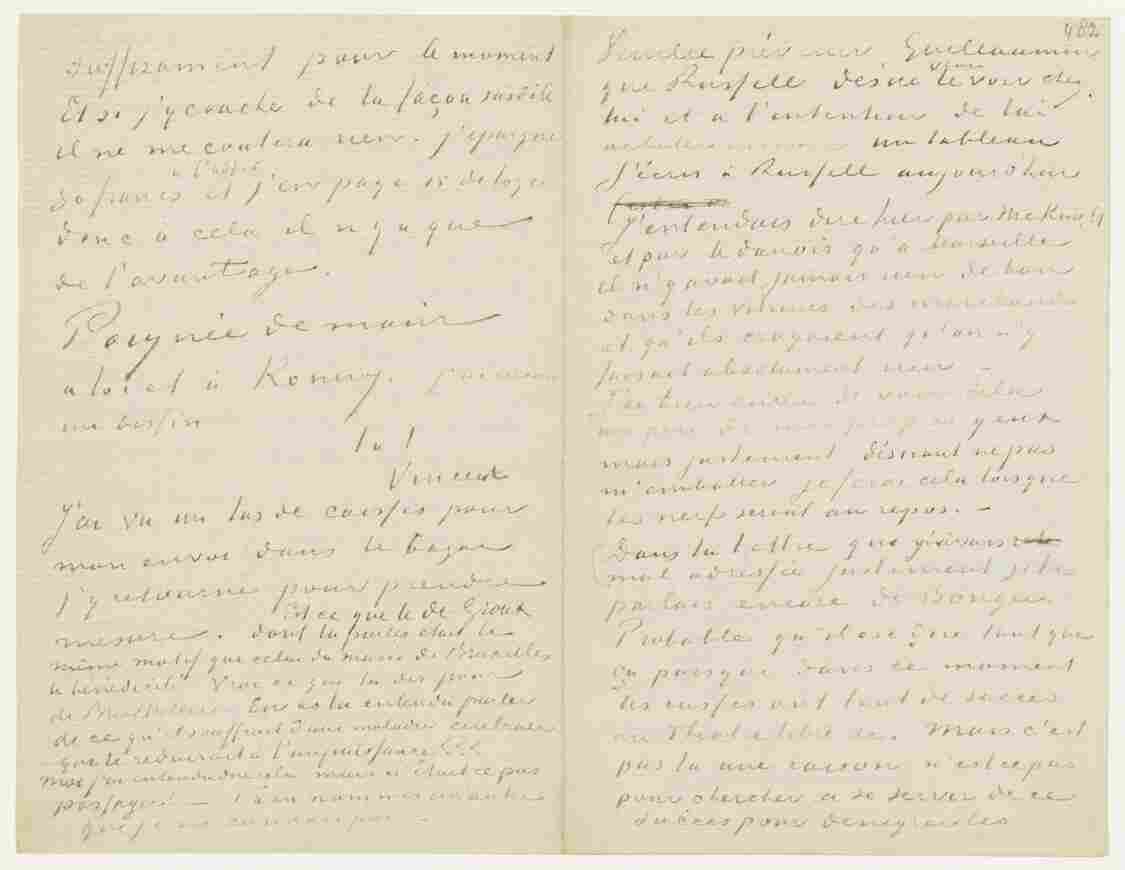 suffisament pour le moment
Et si j'y couche de la façon susdite
il ne me coutera rien. j'épargne
30 francs et j'en paye 15 de loger
à l'hôtel
donc à cela il n'y a que
de l'avantage.
Poignée de main
a toi et à Koning. J'ai encore
un dessin
t. à t.
Vincent
J'ai vu un tas de caisses pour
mon envoi dans le bazar
j'y retourne pour prendre
mesure. Est ce que le de Groux
dont tu parles était le
même motif que celui du musee de Bruxelles
le bénédicité Vrai ce que tu dis pour
de Braekeleer En as tu entendu parler
de ce qu'il souffrait d'une maladie cerebrale
que le réduisait à l'impuissance
Moi j'ai entendu dire cela mais n'était ce pas
passager? – Tu en nommes un autre
que je ne connais pas –
482
Guillaumin
que Russell désire le voir chez
lui et a l'intention de lui
un tableau
J'écris à Russell aujourd'hui
J'entendais dire hier par McKnight
et par le danois qu'à Marseille
il n'y avait jamais rien de bon
dans les vitrines des marchands
et qu'ils croyaient qu'on n'y
faisait absolument rien –
J'ai bien envie de voir cela
un peu de mes propres yeux
mais justement désirant ne pas
m'emballer je ferai cela lorsque
les nerfs seront au repos. –
(Dans la lettre que
mal adressée justement je te
parlais encore de Bonger
Probable qu'il ose dire tout que
ça puisque dans ce moment
les russes ont tant de succès
au Theatre libre &c. Mais c'est
pas la une raison n'est ce pas
pour chercher a se servir de ce
succès pour denigrer les